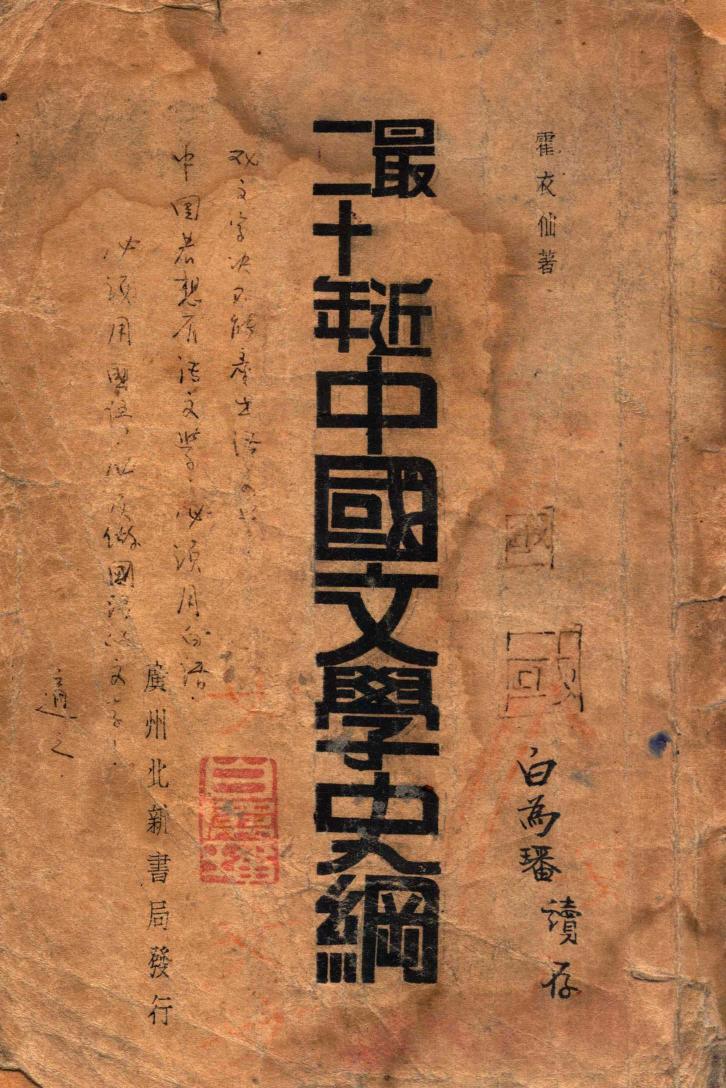 霍衣仙著
國
國
白為璠 讀存
最近
二十年
中國文學史綱
死文字决不能產出活文學
中國若想有活文學，必須用白話，
必須用國語，必須做國語的文學
適之
廣州北新書局發行